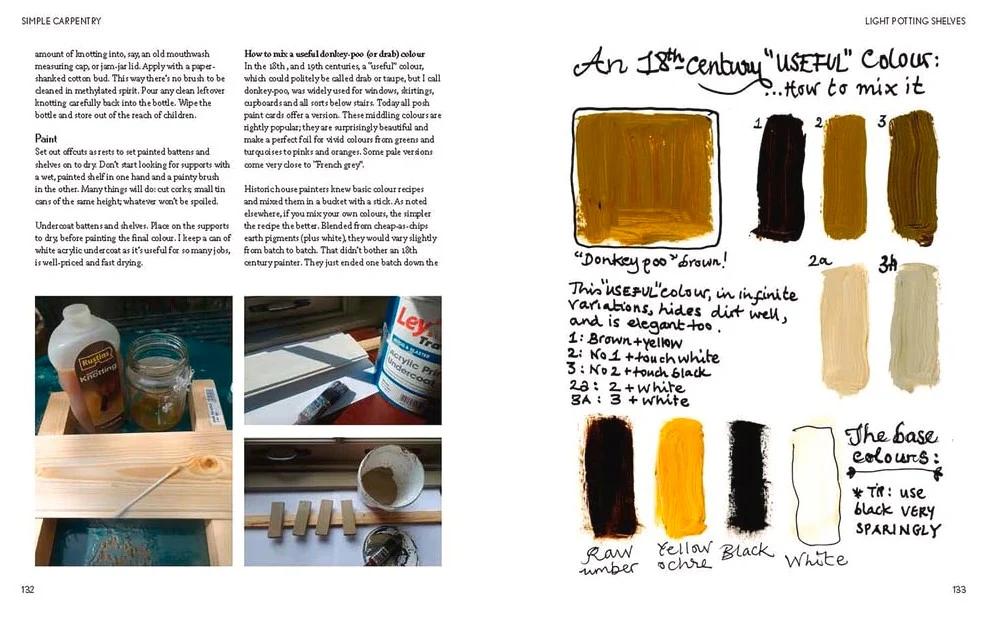 SIMPLE CARPENTRY
amount of knotting into, say, an old mouthwash
measuring cap, or jam-jar lid. Apply with a paper-
shanked cotton bud. This way there's no brush to be
cleaned in methylated spirit. Pour any clean leftover
knotting carefully back into the bottle. Wipe the
bottle and store out of the reach of children.
Paint
Set out offcuts as rests to set painted battens and
shelves on to dry. Don't start looking for supports with
a wet, painted shelf in one hand and a painty brush
in the other. Many things will do: cut corks; small tin
cans of the same height; whatever won't be spoiled.
Undercoat battens and shelves. Place on the supports
to dry, before painting the final colour. I keep a can of
white acrylic undercoat as it's useful for so many jobs,
is well-priced and fast drying.
How to mix a useful donkey-poo (or drab) colour
In the 18th, and 19th centuries, a "useful" colour,
which could politely be called drab or taupe, but I call
donkey-poo, was widely used for windows, skirtings,
cupboards and all sorts below stairs. Today all posh
paint cards offer a version. These middling colours are
rightly popular; they are surprisingly beautiful and
make a perfect foil for vivid colours from greens and
turquoises to pinks and oranges. Some pale versions
come very close to "French grey".
Historic house painters knew basic colour recipes
and mixed them in a bucket with a stick. As noted
elsewhere, if you mix your own colours, the simpler
the recipe the better. Blended from cheap-as-chips
earth pigments (plus white), they would vary slightly
from batch to batch. That didn't bother an 18th
century painter. They just ended one batch down the
Rustins
Knotting
Ley
Tra
Acrylic Pri
Undercoat
132
LIGHT POTTING SHELVES
An 18th century "USEFUL" Colour:
...How to mix it
1
2
3
"Donkey poo" brown!
2a
3A
This "USEFUL" colour, in infinite
variations, hides dirt well,
and is elegant too.
1: Brown + yellow
2: No 1 + touch white
3: No 2 + touch black
2a: 2 + white
3A: 3 + white
The base
colours:
* Tip: use
black VERY
SPARINGLY
Raw
umber
Yellow
ochre
Black
White
133